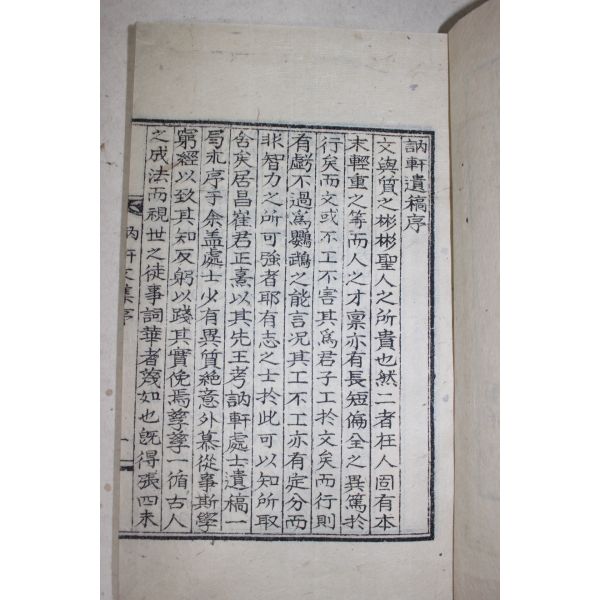 訥軒遺稿序
文與質之彬彬聖人之所貴也然二者在人固有本
末輕重之等而人之才稟亦有長短偏全之異篤於
行矣而文或不工不害其爲君子工於文矣而行則
有虧不過爲鸚鵡之能言況其工不工亦有定分而
非智力之所可強者耶有志之士於此可以知所取
舍矣居昌崔君正熹以其先王考訥軒處士遺稿一
局來序于余盖處士少有異質絶意外慕從事斯學
窮經以致其知反躬以踐其實俛焉孶孶一循古人
之成法而視世之徒事詞華者蔑如也旣得張四未
訥軒文集序
一